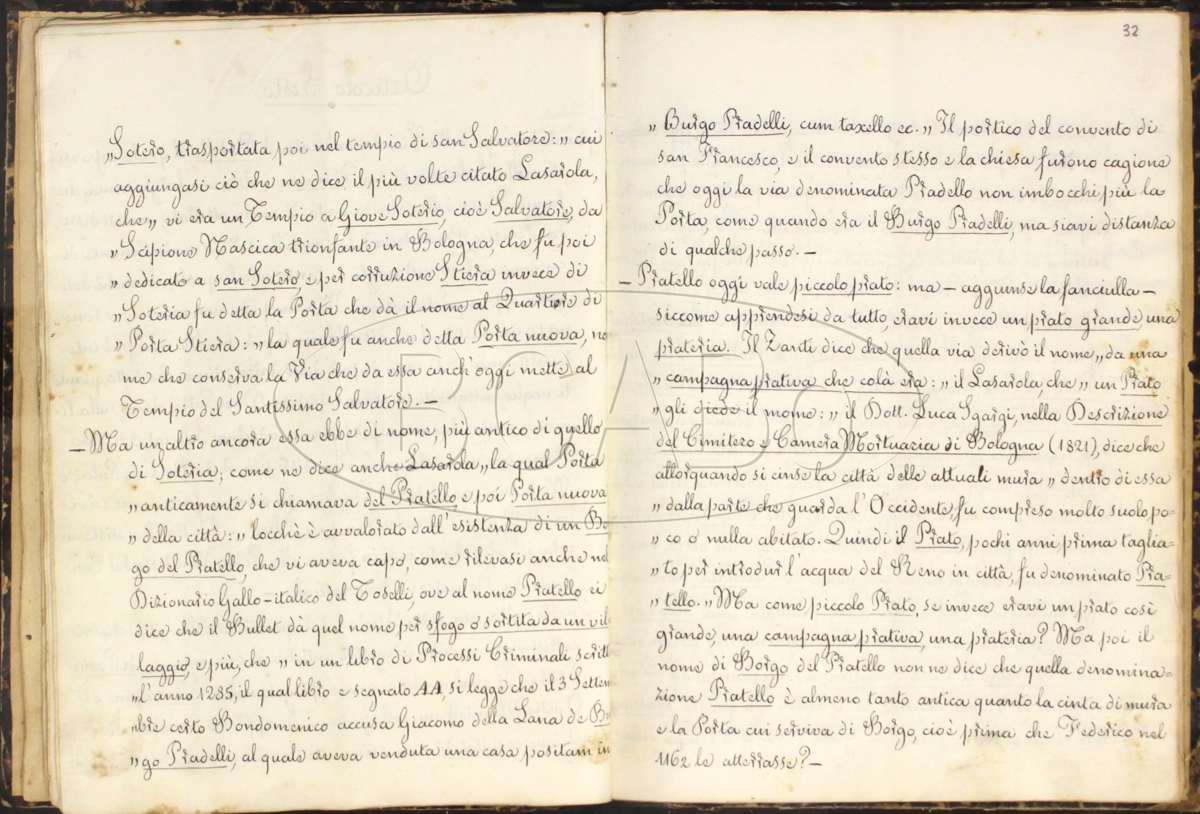 „Sotero, trasportata poi nel tempio di san Salvatore:„ cui
aggiungasi ciò che ne dice il più volte citato Lasarola,
che„ vi era un Tempio a Giove Soterio, cioè Salvatore, da
„Scipione Nascica trionfante in Bologna, che fu poi
„dedicato a san Sotero, e per corruzione Stiera invece di
„Soteria fu detta la Porta che dà il nome al Quartiere di
„Porta Stiera:„ la quale fu anche detta Porta nuova, no
me che conserva la Via che da essa anch'oggi mette al
Tempio del Santissimo Salvatore. —
— Ma un altro ancora essa ebbe di nome, più antico di quello
di Soteria; come ne dice anche Lasarola „la qual Porta
„anticamente si chiamava del Pratello, e poi Porta nuova
„della città:„ locchè è avvalorato dall'esistenza di un Bo
go del Pratello, che vi aveva capo, come rilevasi anche nel
Dizionario Gallo-italico del Toselli, ove al nome Pratello ei
dice che il Bullet dà quel nome per sfogo o sortita da un vil
laggio, e più, che „in un libro di Processi Criminali scritt
„l'anno 1285, il qual libro e segnato AA, si legge che il 3 Settem
„bre certo Bondomenico accusa Giacomo della Lana de Bu
„go Pradelli, al quale aveva venduta una casa positam in
32
„Burgo Pradelli, cum taxello ec.„ Il portico del convento di
san Francesco, e il convento stesso e la chiesa furono cagione
che oggi la via denominata Pradello non imbocchi più la
Porta, come quando era il Burgo Pradelli, ma siavi distanza
di qualche passo. —
— Pratello oggi vale piccolo prato: ma — aggiunse la fanciulla —
siccome apprendesi da tutto, eravi invece un prato grande, una
prateria. Il Zanti dice che quella via derivò il nome „da una
„campagna prativa che colà era:„ il Lasarola, che „un Prato
„gli diede il nome:„ il Dott. Luca Sgargi, nella Descrizione
del Cimitero e Camera Mortuaria di Bologna (1821), dice che
allorquando si cinse la città delle attuali mura „dentro di essa
„dalla parte che guarda l'Occidente, fu compreso molto suolo po=
„co o nulla abitato. Quindi il Prato, pochi anni prima taglia=
„to per introdur l'acqua del Reno in città, fu denominato Pra=
„tello.„ Ma come piccolo Prato, se invece eravi un prato così
grande, una campagna prativa, una prateria? Ma poi il
nome di Borgo del Pratello non ne dice che quella denomina=
zione Pratello è almeno tanto antica quanto la cinta di mura
e la Porta cui serviva di Borgo, cioè prima che Federico nel
1162 le atterrasse? —
BCABO